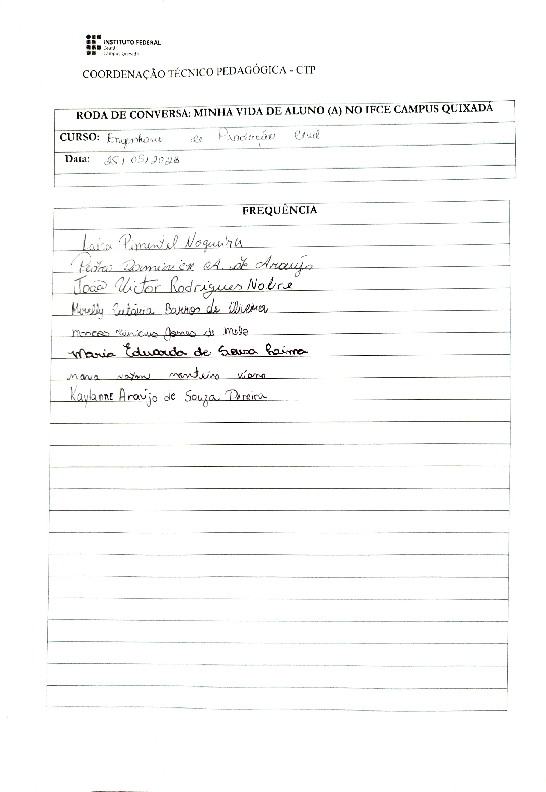 INSTITUTO FEDERAL
Ceará
Campus Quixadá
COORDENAÇÃO TÉCNICO PEDAGÓGICA - CTP
RODA DE CONVERSA: MINHA VIDA DE ALUNO (A) NO IFCE CAMPUS QUIXADÁ
CURSO: Engenharia de Produção Civil
Data: 25/05/2023
FREQUÊNCIA
Laísa Pimentel Nogueira
Pedro de Araújo
João Victor Rodrigues Nobre
Barros de Oliveira
Marcos Vinicius Gomes de Melo
Maria Eduarda de Souza Lima
Maria monteiro viana
Kaylanne Araújo de Souza Pereira